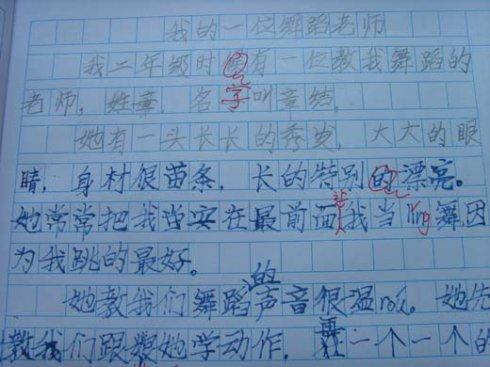 我的一位舞蹈老师
我二年级时有一位教我舞蹈的
老师，姓章，名字叫章结，
她有一头长长的秀发，大大的眼
睛，身材很苗条，长的特别的漂亮。
她常常把我安在最前面我当ling舞因
为我跳的最好。
她教我们舞蹈的声音很温rou。她先
教我们跟她学动作，再一个一个的